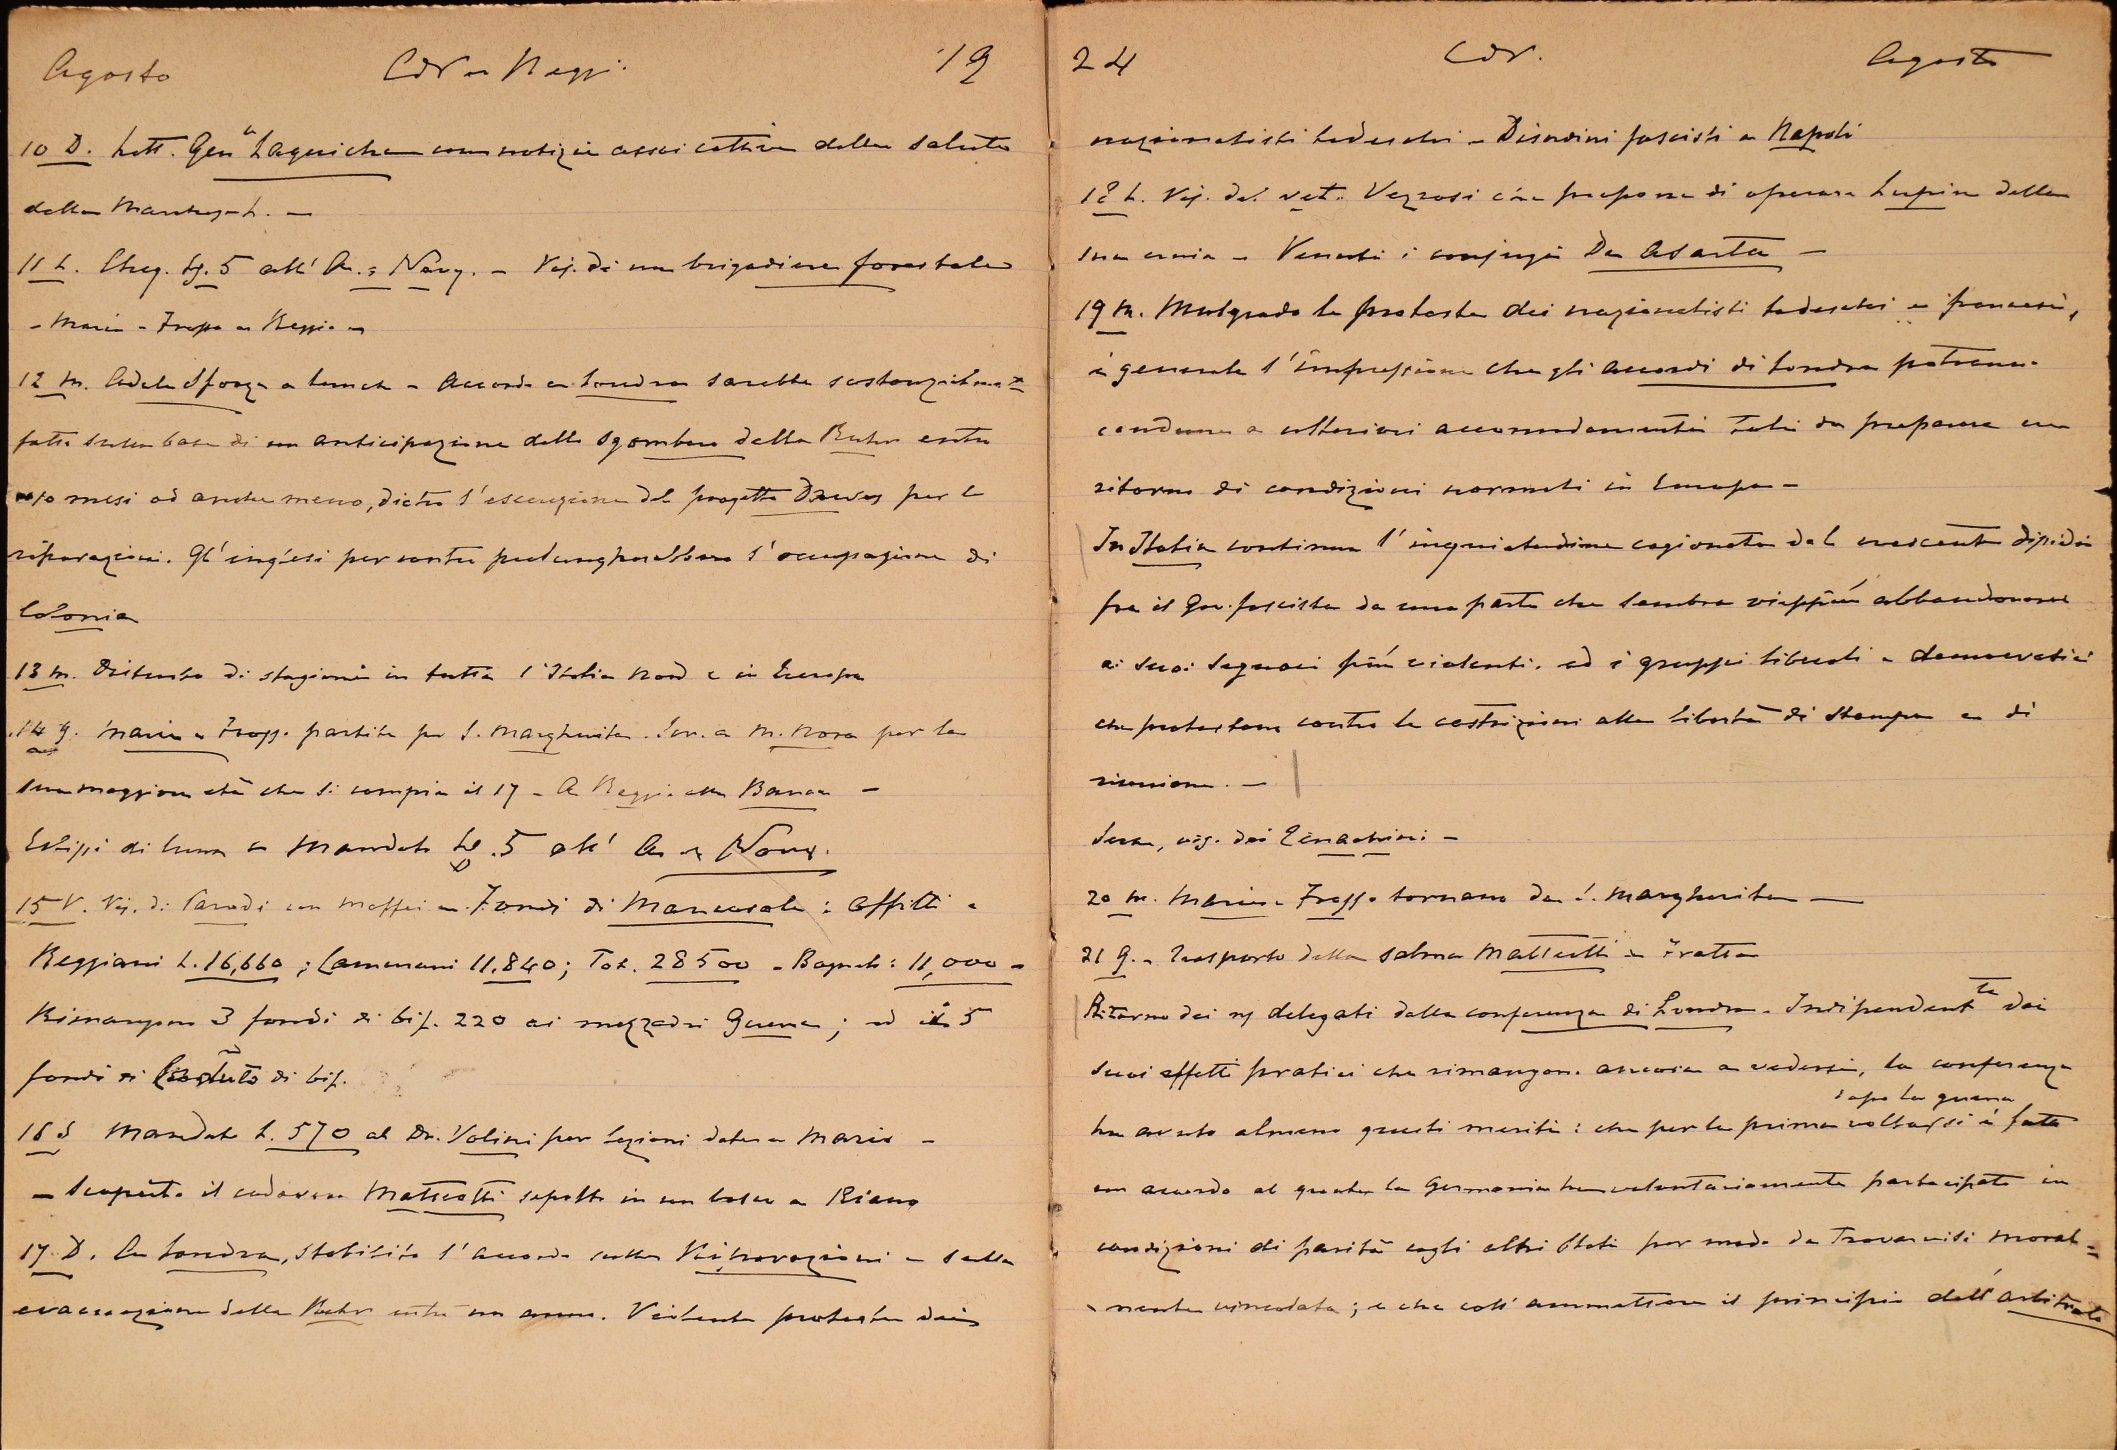 Agosto CdV e Reggio '19
10 D. Lett. Gen.a Laguiche con notizie assai cattive della salute
della March. L. —
11 L. Cheq. Lg. 5 all' A. e Navy. — Vis. di un brigadiere forestale
– Maria e Fropp. a Reggio –
12 M. Adele Sforza a lunch – Accordo a Londra sarebbe sostanzialm.te
fatto sulla base di un anticipazione dello sgombero della Ruhr entro
10 mesi od anche meno, dietro l'esecuzione del progetto Dawes per le
riparazioni. Gl'inglesi per contro prolungherebbero l'occupazione di
Colonia
13 M. Disturbo di stagione in tutta l'Italia Nord e in Europa
14 G. Maria e Fropp. partite per S. Margherita. Scr. a M. Nora per la
sua maggiore età che si compie il 17 – A Reggio alla Banca –
Eclissi di luna – Mandato Lg. 5 all' A. e Navy.
15 V. Vis. di Parodi con Maffei – Fondi di Mancasale : Affitti :
Reggiani L. 16,660 ; Camurani 11.840 ; Tot. 28500 – Bagnoli : 11,000 –
Rimangono 3 fondi di bif. 220 ai mezzadri Guerra ; ed i 5
fondi di di bif.
16 S Mandato L. 570 al Dr. Volini per lezioni date a Mario –
– Scoperto il cadavere Matteotti sepolto in un bosco a Riano
17 D. A Londra, stabilito l'accordo sulle Riparazioni e sulla
evacuazione della Ruhr entro un anno. Violente proteste dei
24 CdV. Agosto
nazionalisti tedeschi – Disordini fascisti a Napoli
18 L. Vis. del vet. Vezzosi che propone di operare Lupin della
sua ernia – Venuti i conjugi De Asarta –
19 M. Malgrado le proteste dei nazionalisti tedeschi e francesi,
è generale l'impressione che gli accordi di Londra potranno
condurre a ulteriori accomodamenti tali da preparare un
ritorno di condizioni normali in Europa –
In Italia continua l'inquietudine cagionata dal crescente dissidio
fra il Gov. fascista da una parte che sembra vieppiù abbandonarsi
ai suoi seguaci più violenti, ed i gruppi liberali e democratici
che protestano contro le costrizioni alla libertà di stampa e di
riunione. —
Sera, vis. dei –
20 M. Maria e Fropp. tornano da S. Margherita —
21 G. – Trasporto della salma Matteotti a Fratta
Ritorno dei ns delegati dalla conferenza di Londra. Indipendente.te dai
suoi effetti pratici che rimangono ancora a vedersi, la conferenza
dopo la guerra
ha avuto almeno questi meriti : che per la prima volta si è fatto
un accordo al quale la Germania ha volontariamente partecipato in
condizioni di parità cogli altri Stati per modo da trovarvisi moral=
mente vincolata ; e che così ammettere il principio dell'arbitrato